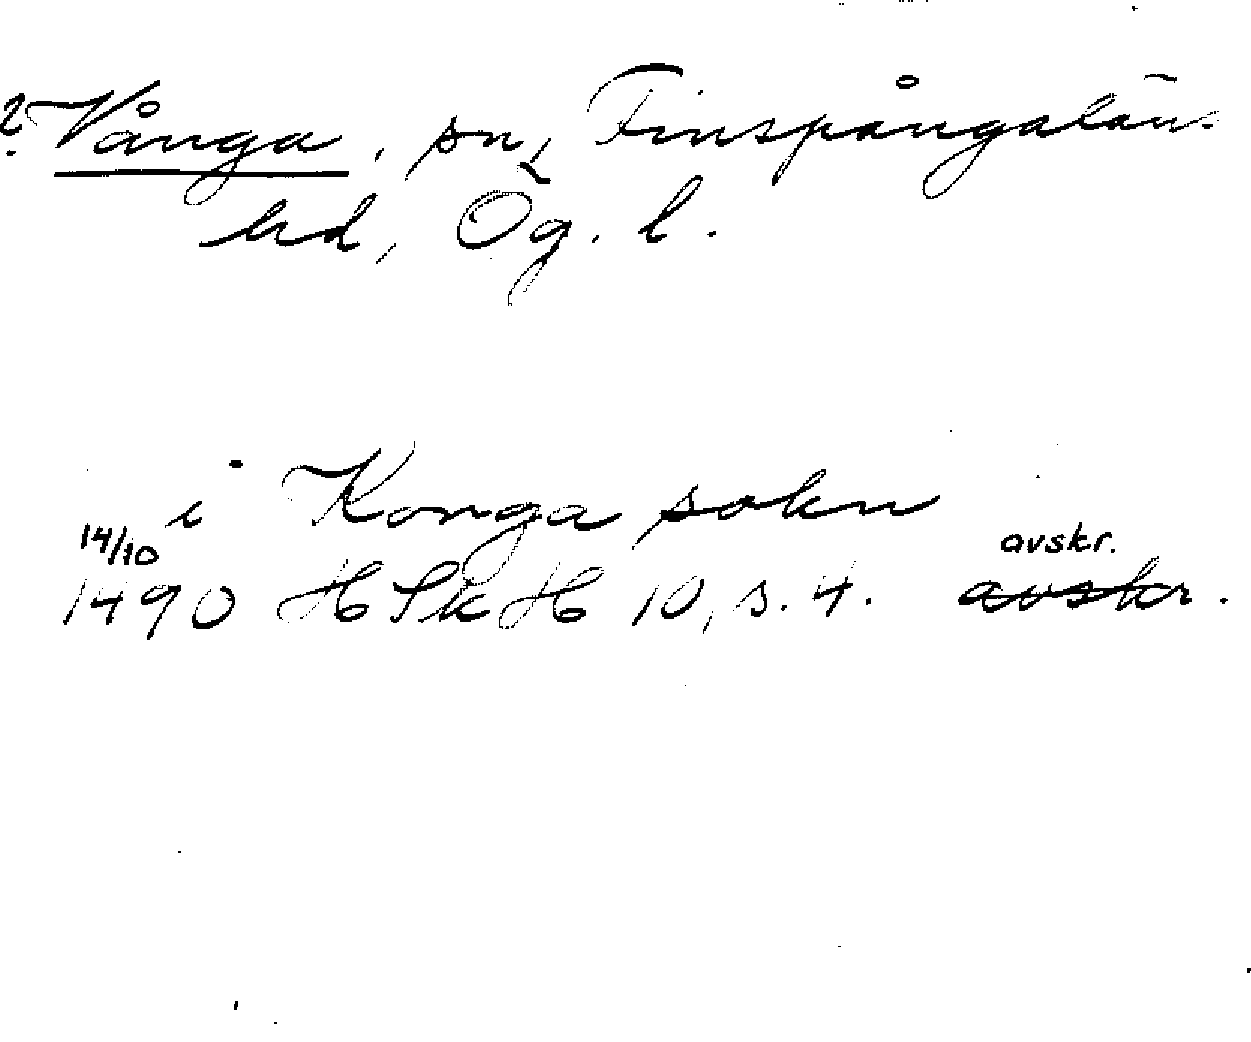 ? Vånga, sn, Finspångalän.
hd, Ög. l.
i Konga sokn
14/10 avskr.
1490 HSkH 10, s. 4. avskr.